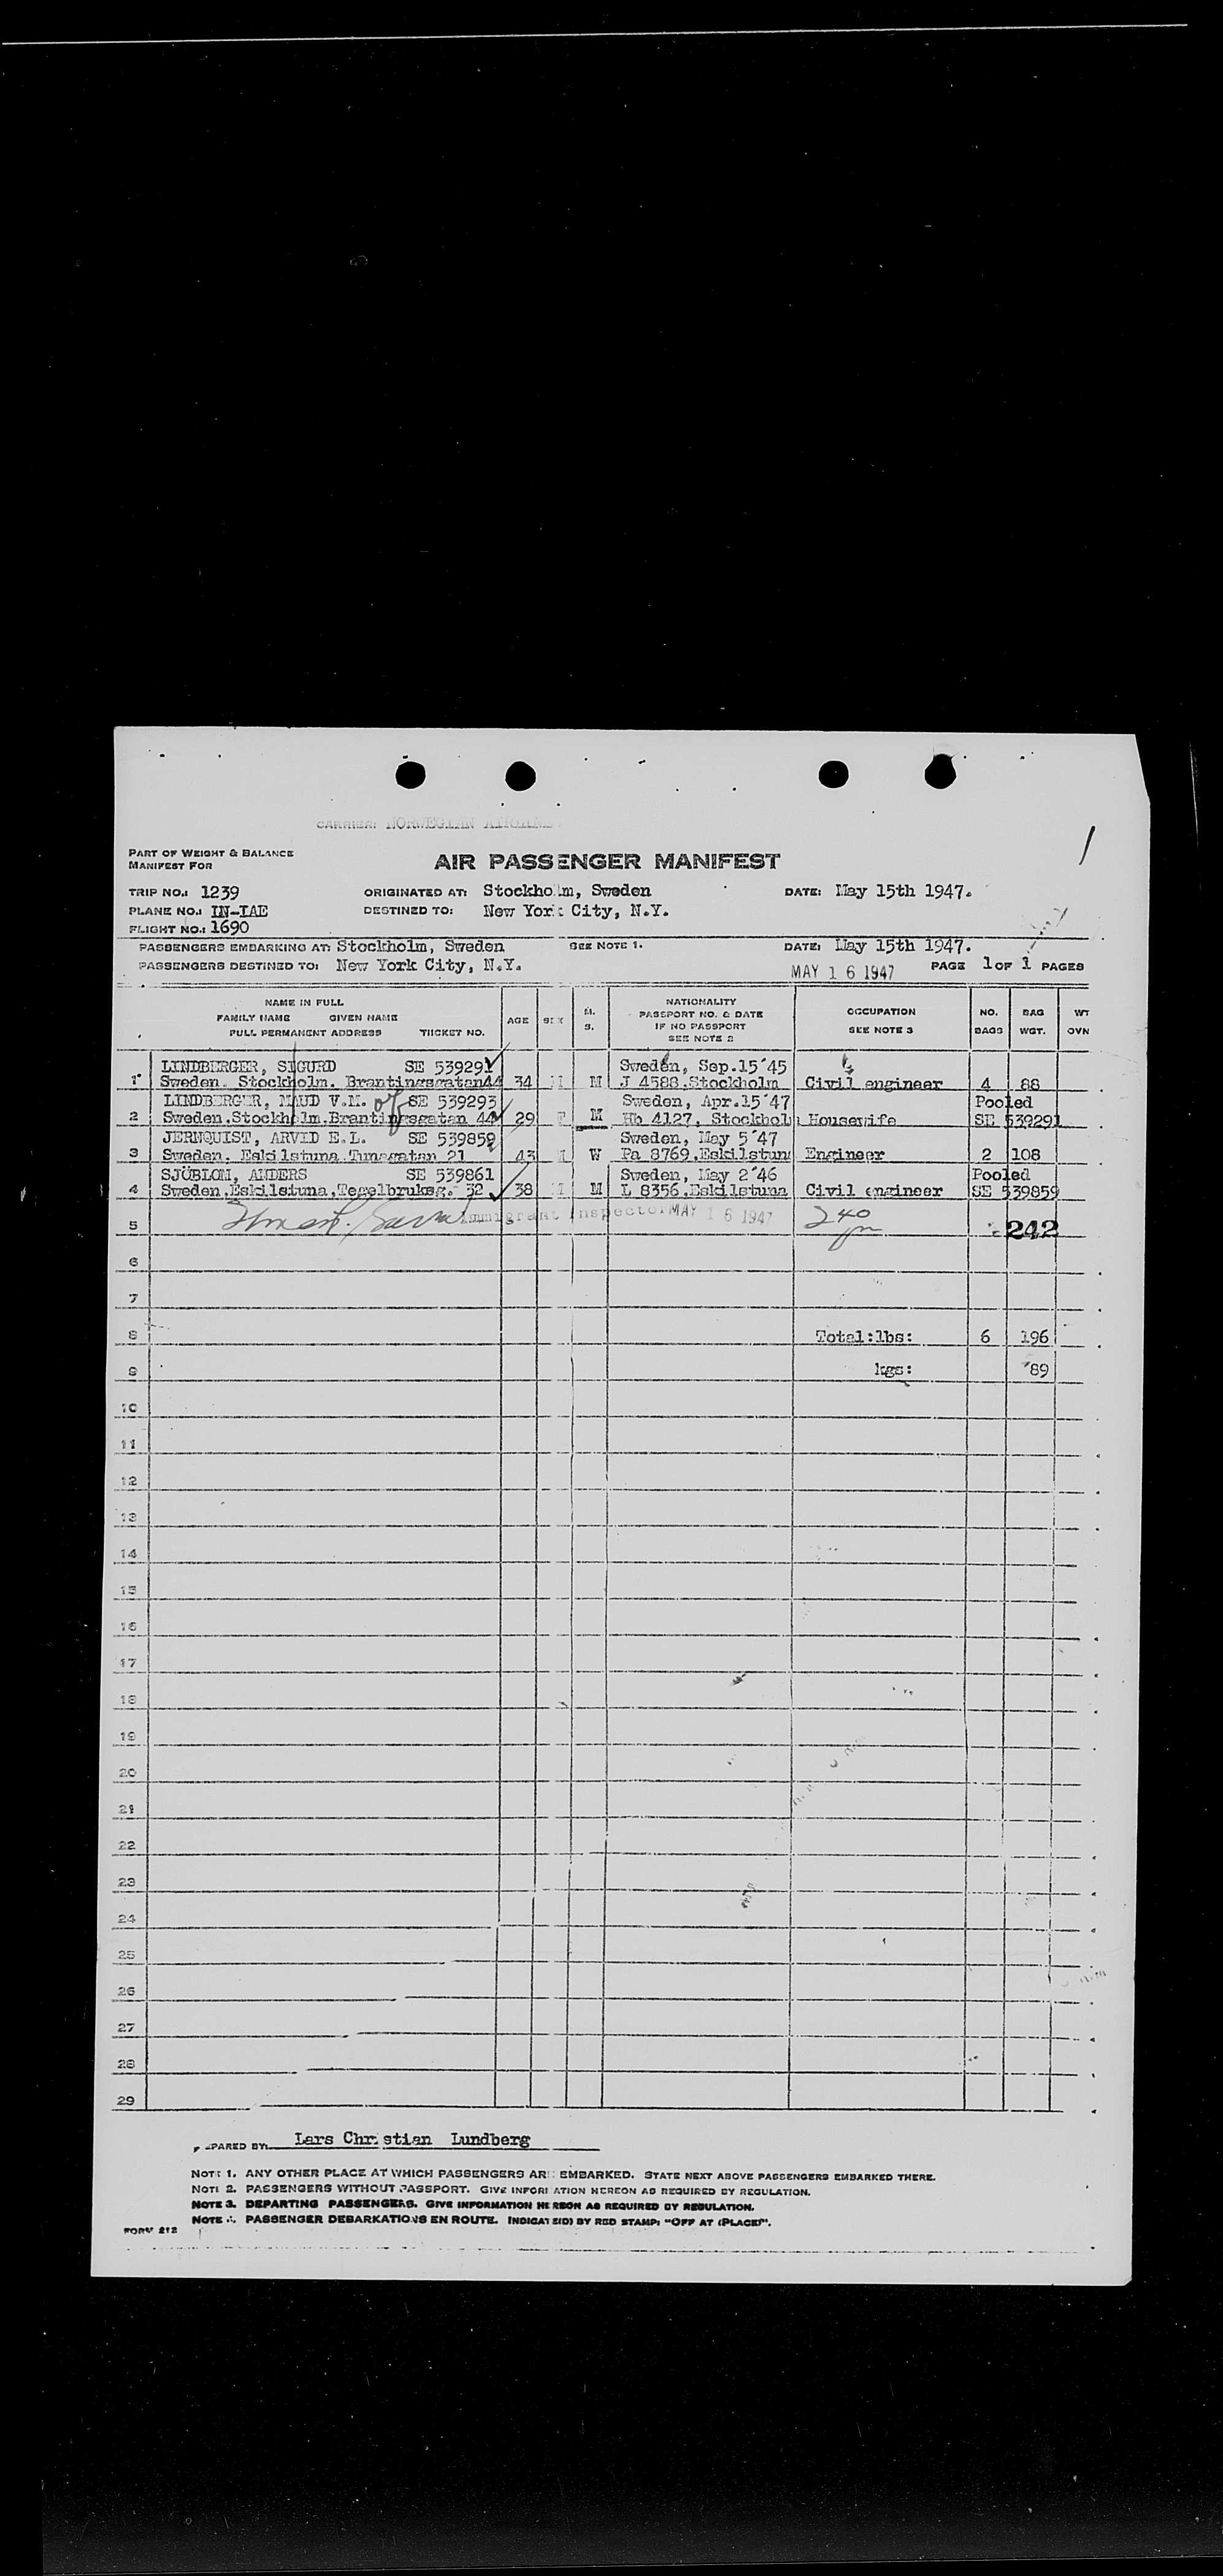 CARRIER: NORWEGIAN AIRLINES
PART OF WEIGHT & BALANCE
MANIFEST FOR
AIR PASSENGER MANIFEST
1
TRIP NO.: 1239 ORIGINATED AT: Stockholm, Sweden DATE: May 15th 1947.
PLANE NO.: LN-IAE DESTINED TO: New York City, N.Y.
FLIGHT NO.: 1690
PASSENGERS EMBARKING AT: Stockholm, Sweden SEE NOTE 1. DATE: May 15th 1947.
PASSENGERS DESTINED TO: New York City, N.Y. MAY 16 1947 PAGE 1 OF 1 PAGES
NAME IN FULL
FAMILY NAME GIVEN NAME
FULL PERMANENT ADDRESS TICKET NO.
AGE SEX M. S.
NATIONALITY
PASSPORT NO. & DATE
IF NO PASSPORT
SEE NOTE 2
OCCUPATION
SEE NOTE 3
NO. BAGS
BAG WGT.
WT OVN
LINDBERGER, SIGURD SE 539291 Sweden, Sep.15'45
1 Sweden. Stockholm. Brantingsgatan44 34 M M J 4588.Stockholm Civil engineer 4 88
LINDBERGER, MAUD V.M. SE 539293 Sweden, Apr.15'47 Pooled
2 Sweden.Stockholm.Brantingsgatan 44 29 F M Hb 4127, Stockhol Housewife SE 539291
JERNQUIST, ARVID E.L. SE 539859 Sweden, May 5'47
3 Sweden. Eskilstuna.Tunagatan 21 43 M W Pa 8769.Eskilstun Engineer 2 108
SJÖBLOM, ANDERS SE 539861 Sweden, May 2'46 Pooled
4 Sweden.Eskilstuna,Tegelbruksg. 32 38 M M L 8356.Eskilstuna Civil engineer SE 539859
5 Immigrant Inspector MAY 16 1947 240 242
6
7
8 Total:lbs: 6 196
9 kgs: 89
10
11
12
13
14
15
16
17
18
19
20
21
22
23
24
25
26
27
28
29
PREPARED BY: Lars Christian Lundberg
NOTE 1. ANY OTHER PLACE AT WHICH PASSENGERS ARE EMBARKED. STATE NEXT ABOVE PASSENGERS EMBARKED THERE.
NOTE 2. PASSENGERS WITHOUT PASSPORT. GIVE INFORMATION HEREON AS REQUIRED BY REGULATION.
NOTE 3. DEPARTING PASSENGERS. GIVE INFORMATION HEREON AS REQUIRED BY REGULATION.
NOTE 4. PASSENGER DEBARKATIONS EN ROUTE. INDICATE(D) BY RED STAMP: "OFF AT (PLACE)".
FORM 212